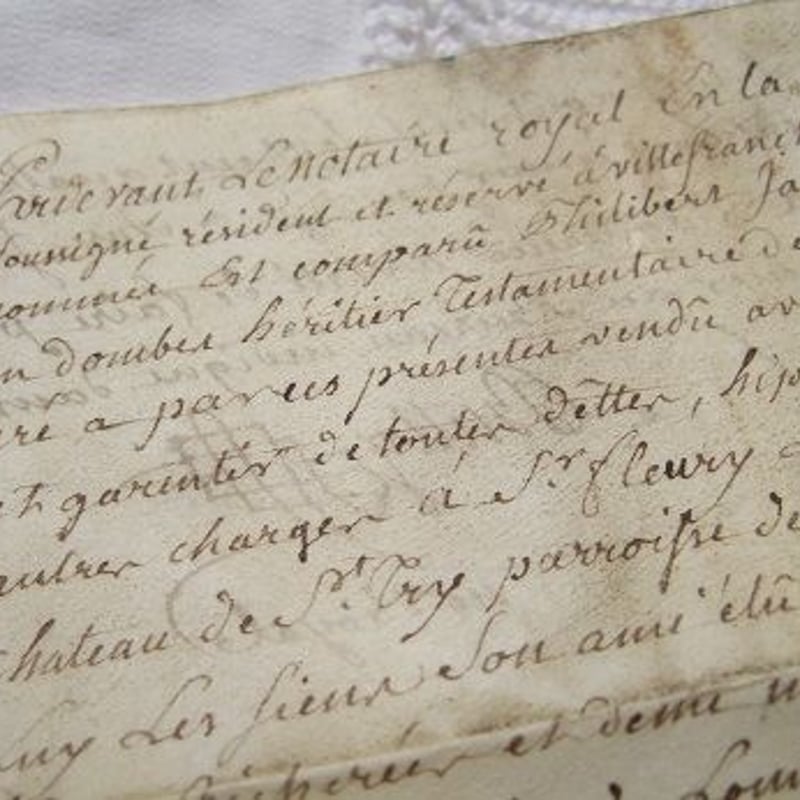 Pardevant Le notaire royal En la
soussigné résident et réservé à villefranch
Est comparû Philibert Ja
en dombes héritier Testamentaire de
a par ces présentes vendû av
et garentir de toutes dêttes, hip
autres charges à Sr fleury
chateau de St Try parroisse de
Luy Les siens Son ami élû
bicherées et demi